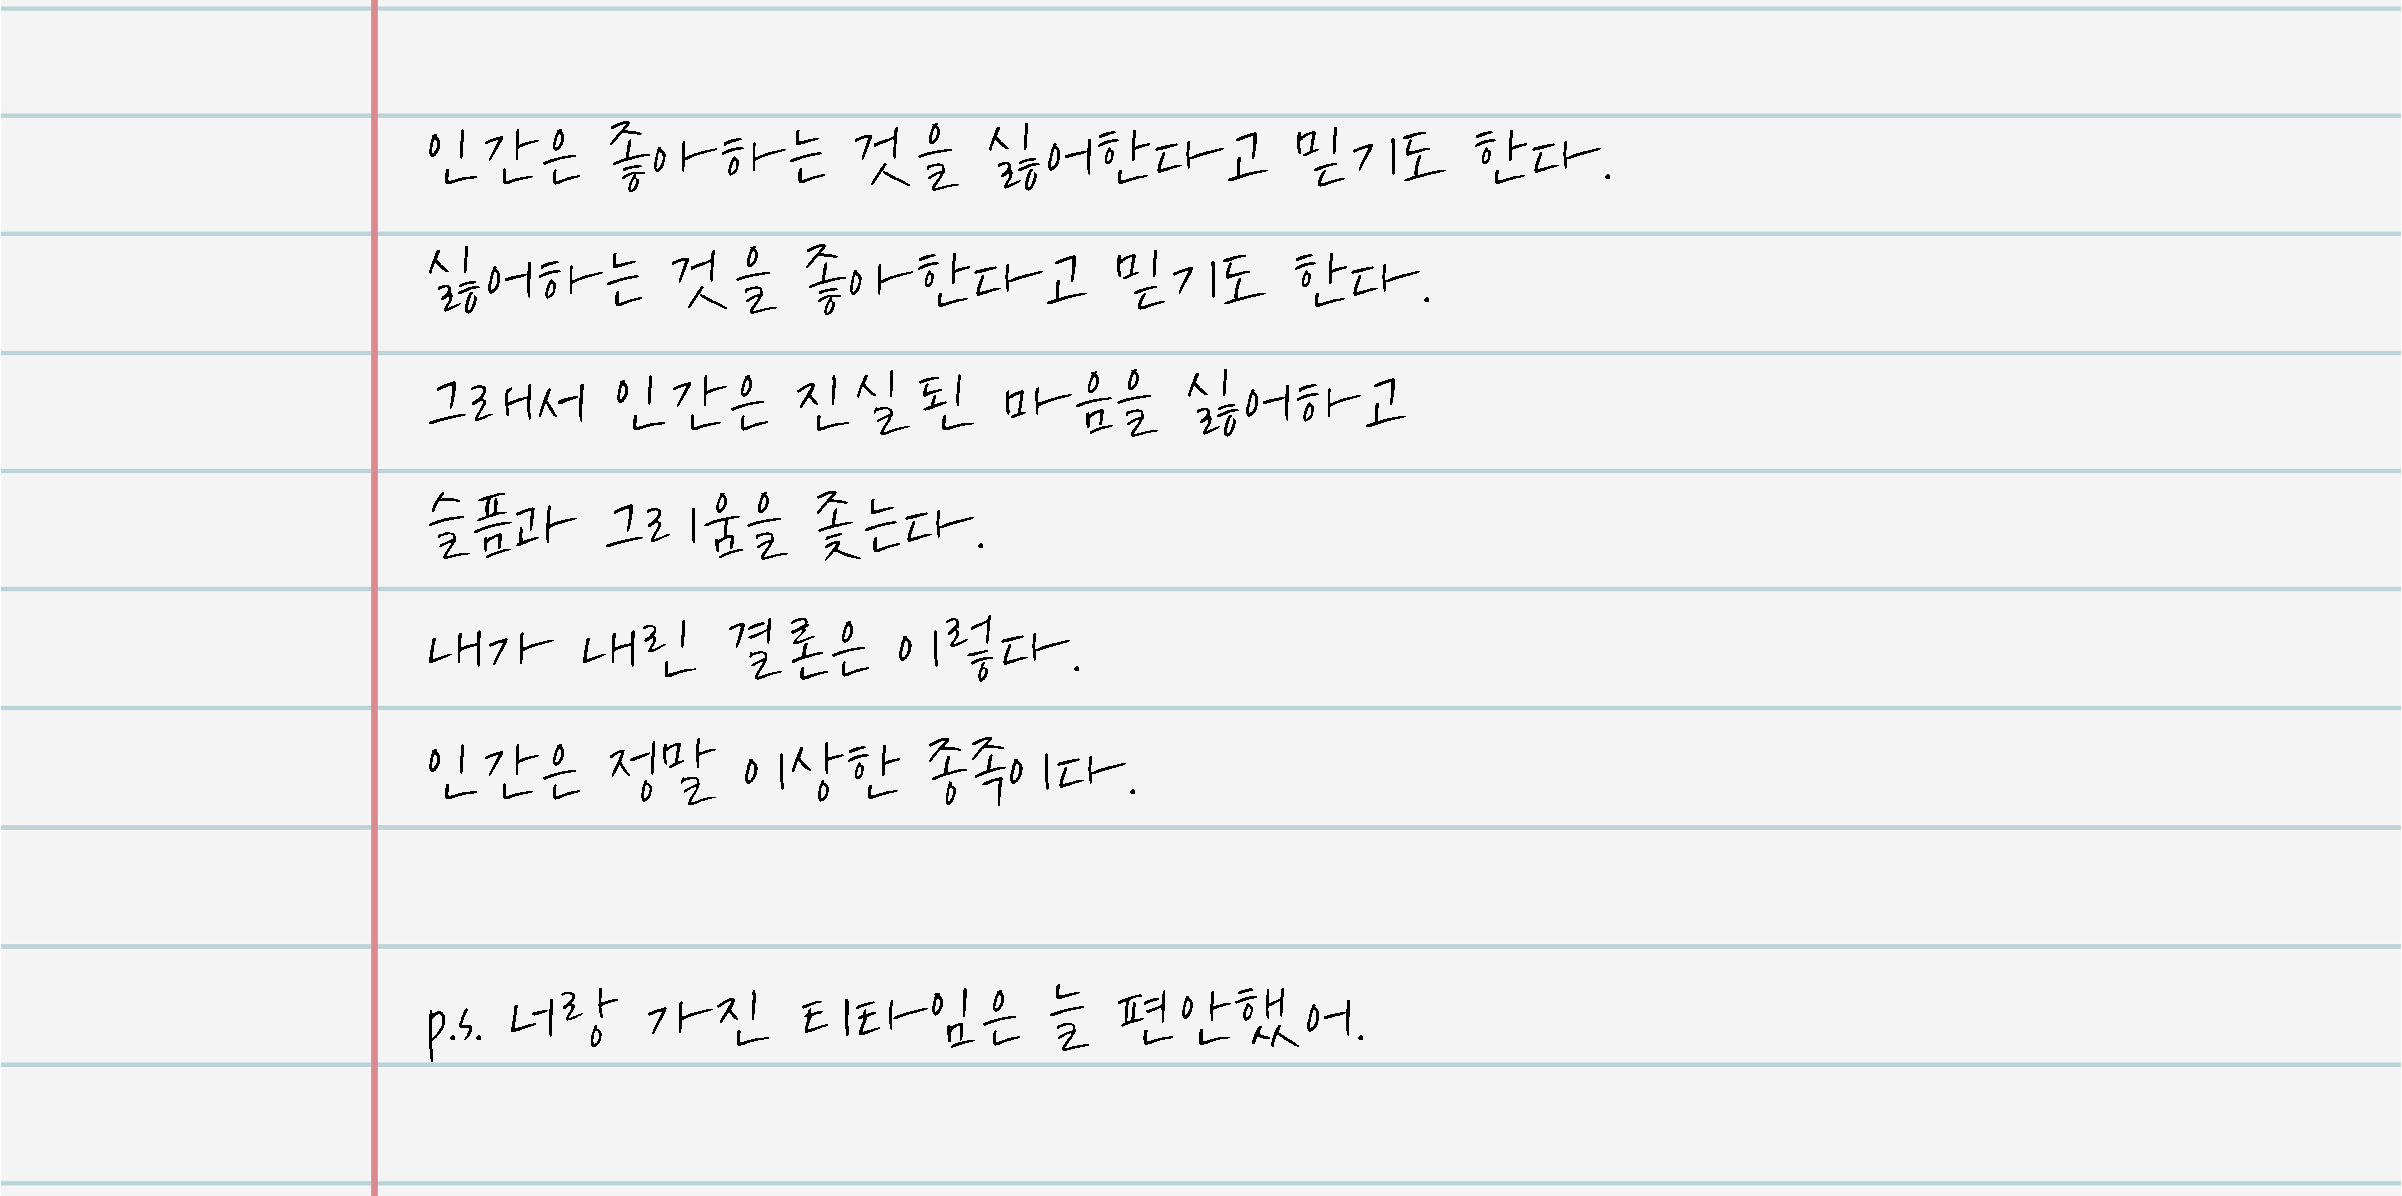 인간은 좋아하는 것을 싫어한다고 믿기도 한다.
싫어하는 것을 좋아한다고 믿기도 한다.
그래서 인간은 진실된 마음을 싫어하고
슬픔과 그리움을 좇는다.
내가 내린 결론은 이렇다.
인간은 정말 이상한 종족이다.
p.s. 너랑 가진 티타임은 늘 편안했어.